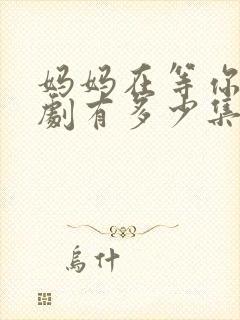 妈妈在等你
劇有多少集
烏什